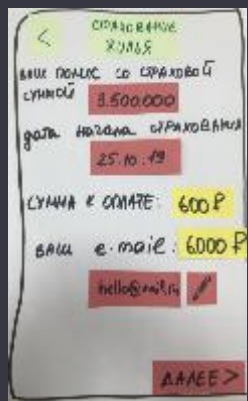 <
СТРАХОВАНИЕ
ЖИЛЬЯ
ВАШ ПОЛИС СО СТРАХОВОЙ
СУММОЙ 3.500.000
дата начала СТРАХОВАНИЯ
25.10.19
СУММА К ОПЛАТЕ: 600 ₽
ВАШ e-mail: 6000 ₽
hello@mail.ru
ДАЛЕЕ >